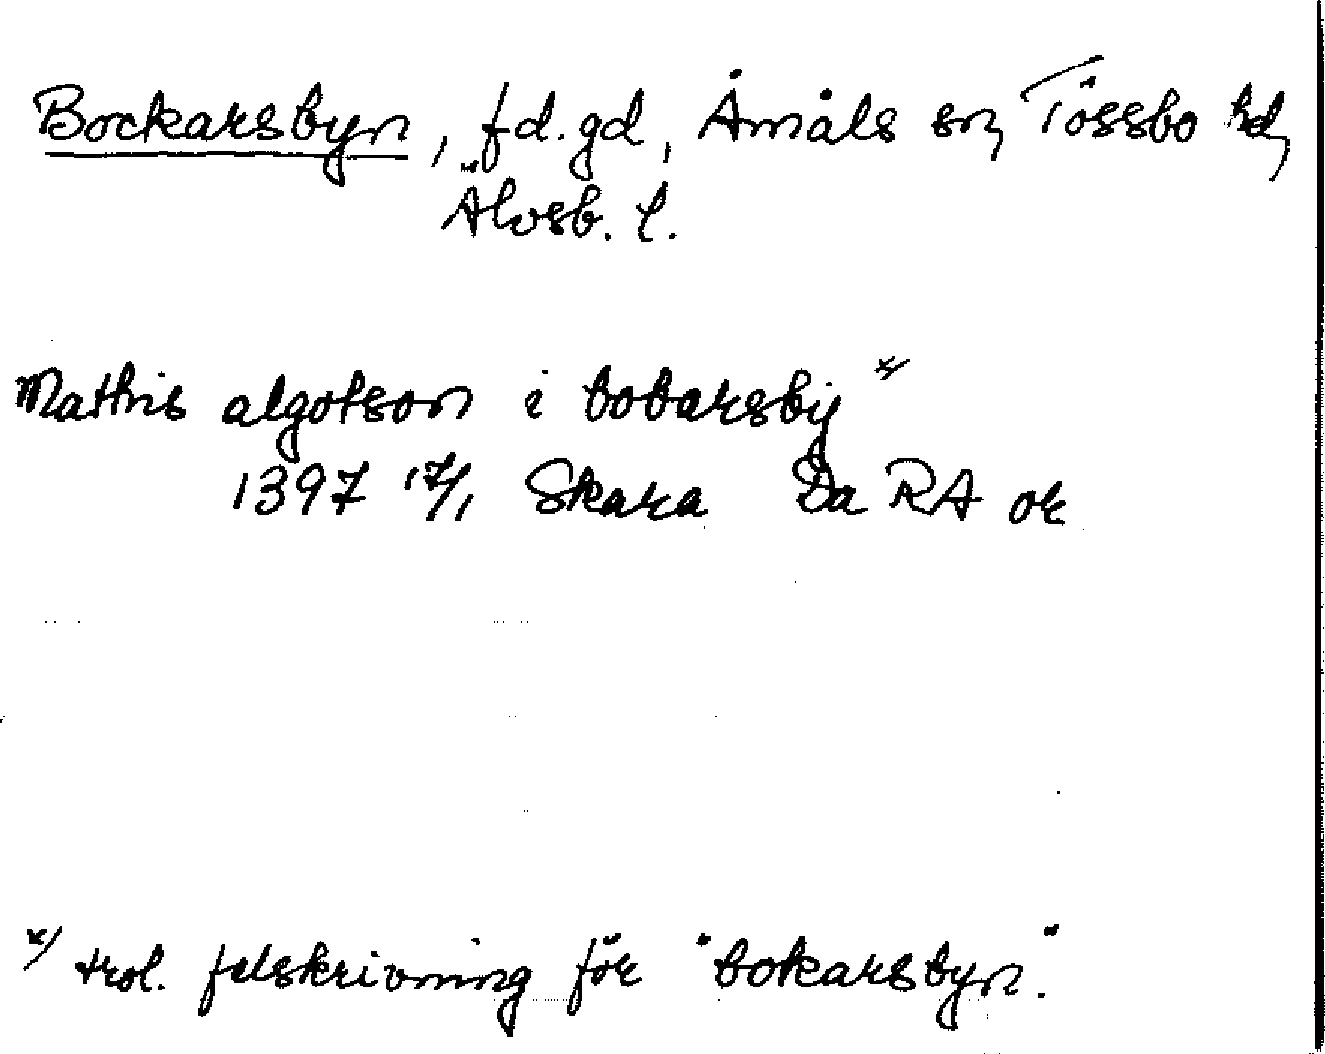 Bockarsbyn, fd. gd, Åmåls sn, Tössbo hd,
Älvsb. l.
Mathis algotson i bobarsbij x/
1397 17/1 Skara Da RA or
x/ trol. felskrivning för "bokarsbyn".